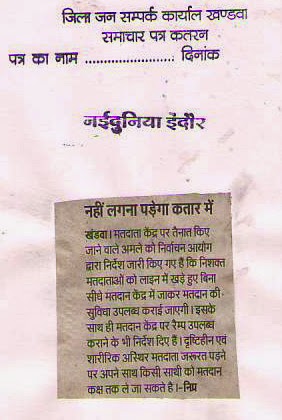 जिला जन सम्पर्क कार्याल खण्डवा
समाचार पत्र कतरन
पत्र का नाम ...................... दिनांक
नईदुनिया इंदौर
नहीं लगना पड़ेगा कतार में
खंडवा। मतदाता केंद्र पर तैनात किए
जाने वाले अमले को निर्वाचन आयोग
द्वारा निर्देश जारी किए गए हैं कि निशक्त
मतदाताओं को लाइन में खड़े हुए बिना
सीधे मतदान केंद्र में जाकर मतदान की
सुविधा उपलब्ध कराई जाएगी। इसके
साथ ही मतदान केंद्र पर रैम्प उपलब्ध
कराने के भी निर्देश दिए हैं। दृष्टिहीन एवं
शारीरिक अस्थिर मतदाता जरूरत पड़ने
पर अपने साथ किसी साथी को मतदान
कक्ष तक ले जा सकते है।-निप्र